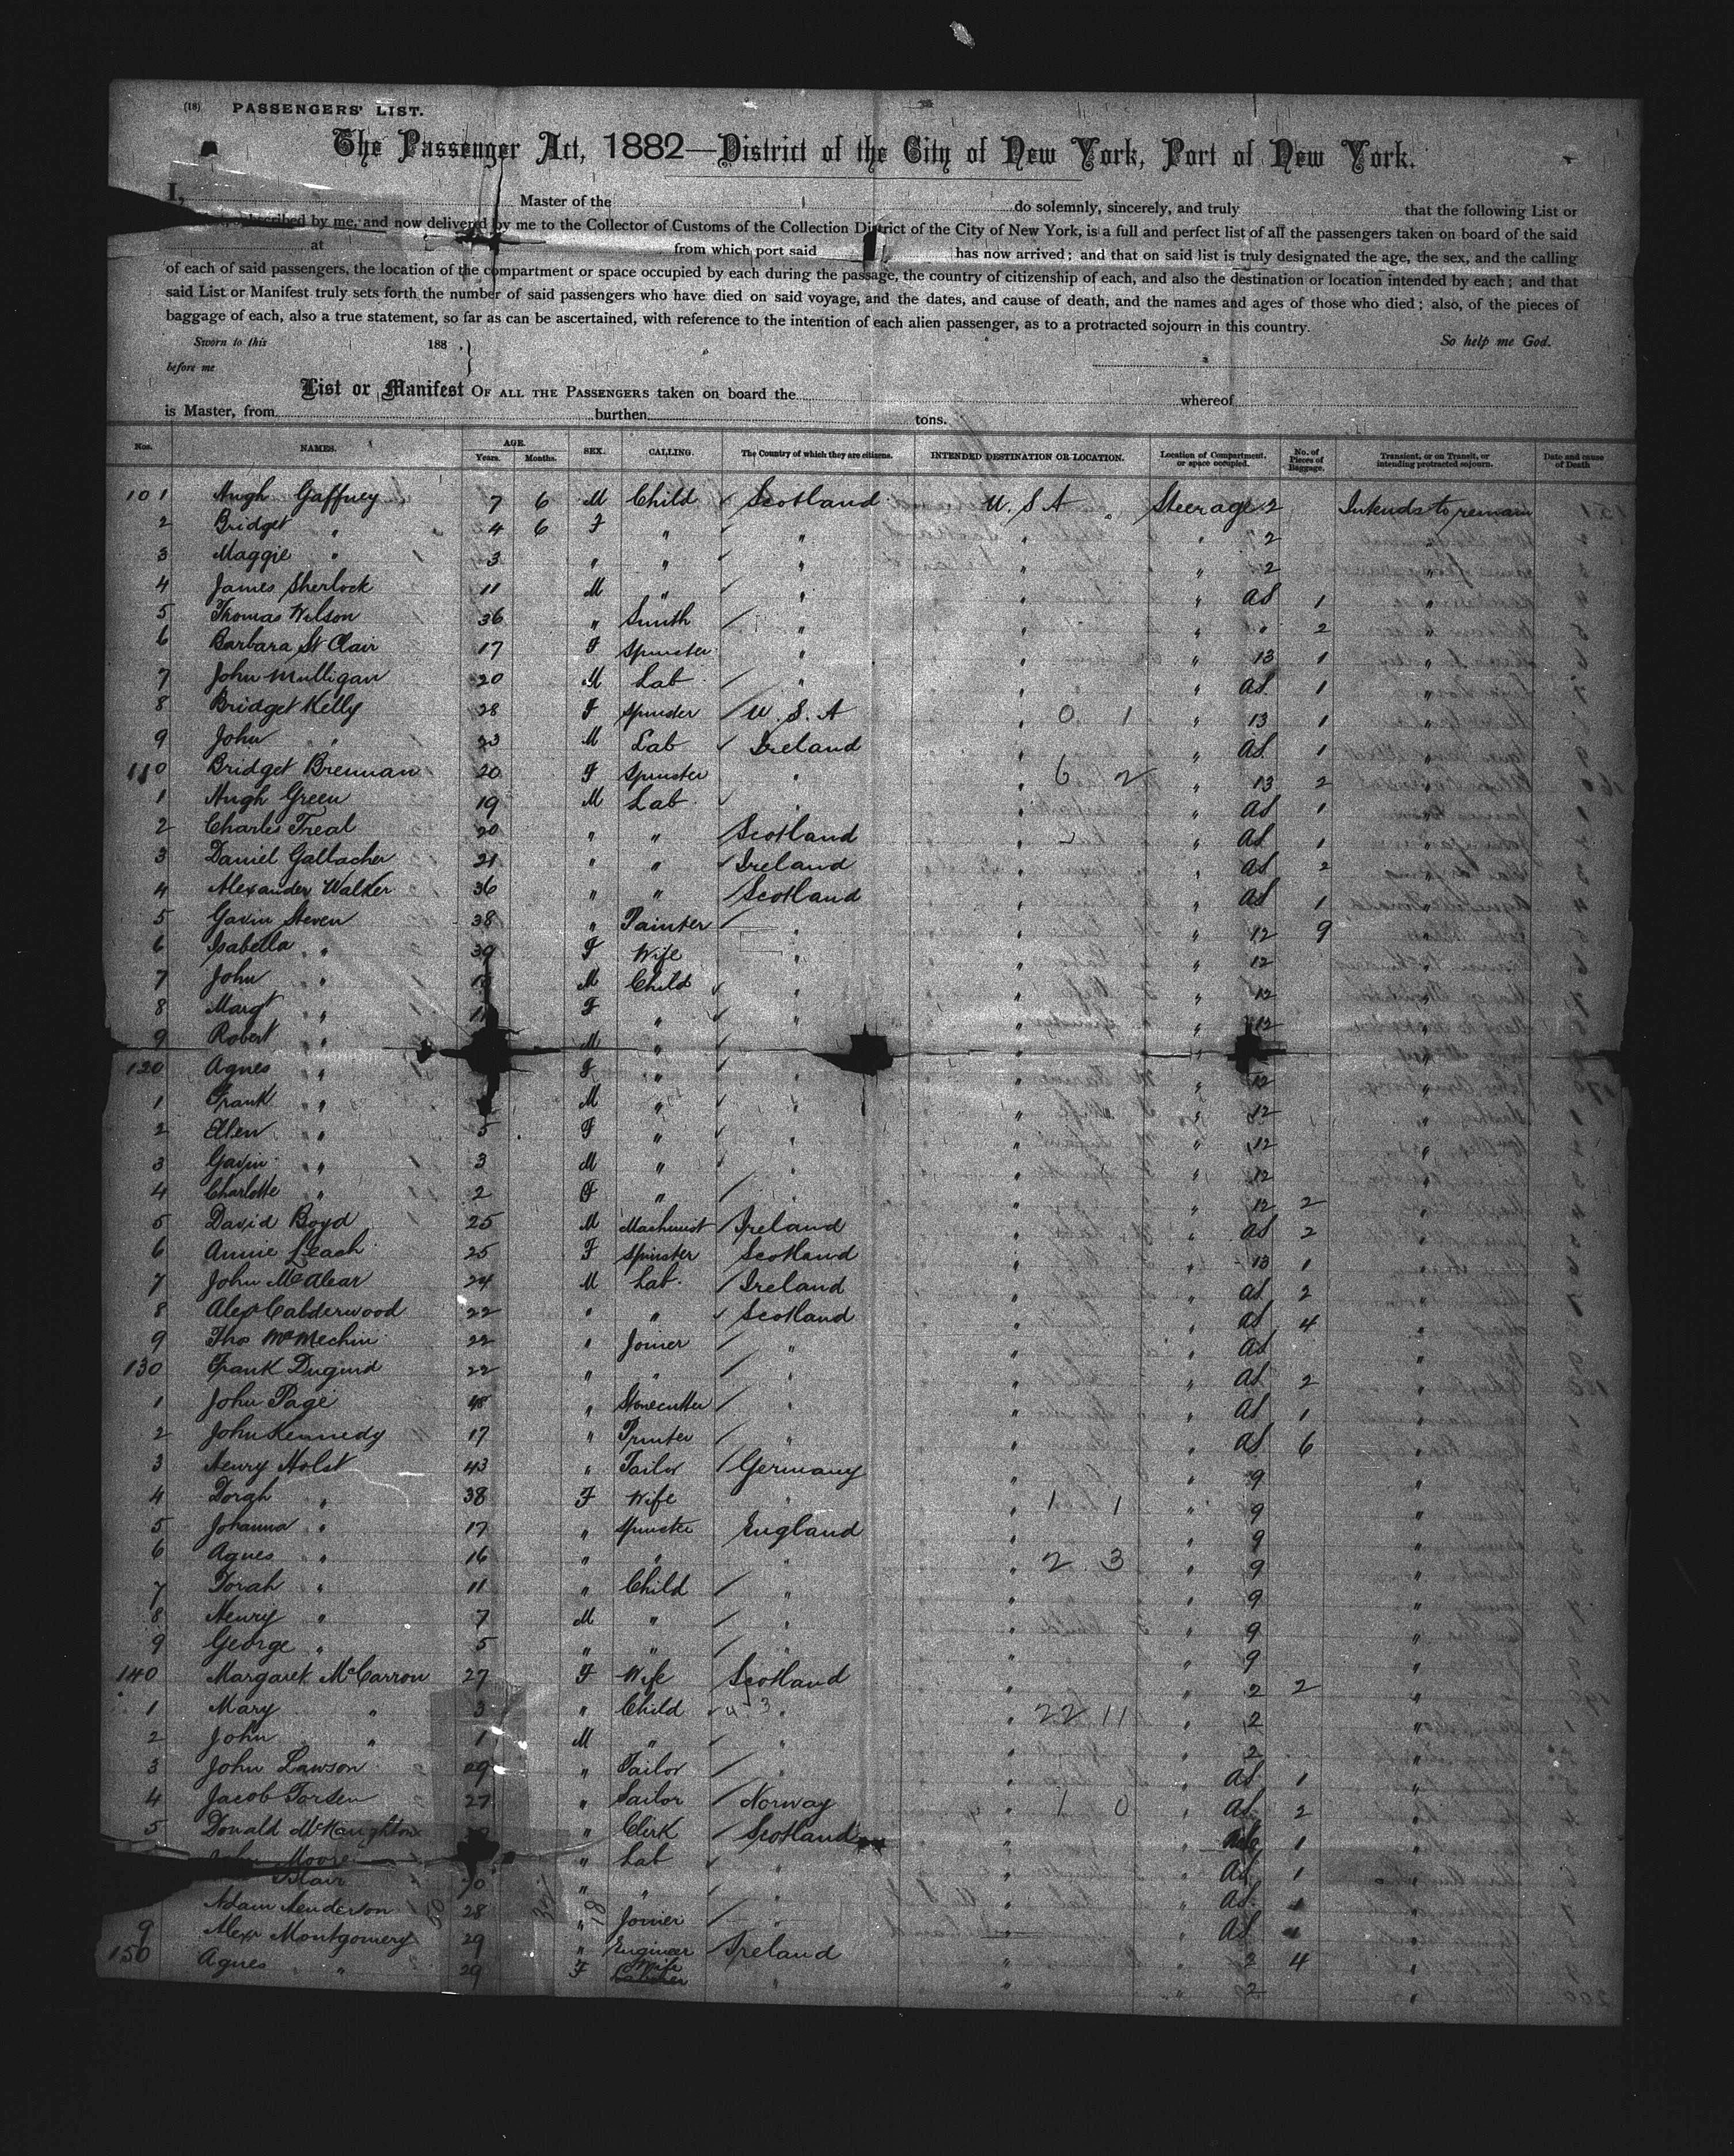 (18) PASSENGERS' LIST.
The Passenger Act, 1882—District of the City of New York, Port of New York.
I, Master of the do solemnly, sincerely, and truly that the following List or
subscribed by me, and now delivered by me to the Collector of Customs of the Collection District of the City of New York, is a full and perfect list of all the passengers taken on board of the said
at from which port said has now arrived; and that on said list is truly designated the age, the sex, and the calling
of each of said passengers, the location of the compartment or space occupied by each during the passage, the country of citizenship of each, and also the destination or location intended by each; and that
said List or Manifest truly sets forth the number of said passengers who have died on said voyage, and the dates, and cause of death, and the names and ages of those who died; also, of the pieces of
baggage of each, also a true statement, so far as can be ascertained, with reference to the intention of each alien passenger, as to a protracted sojourn in this country.
Sworn to this 188 . So help me God.
before me
List or Manifest OF ALL THE PASSENGERS taken on board the whereof
is Master, from burthen tons.
Nos. NAMES. AGE. Years. Months. SEX. CALLING. The Country of which they are citizens. INTENDED DESTINATION OR LOCATION. Location of Compartment, or space occupied. No. of Pieces of Baggage. Transient, or on Transit, or intending protracted sojourn. Date and cause of Death
101 Hugh Gaffney 7 6 M Child Scotland U.S.A Steerage 2 Intends to remain
2 Bridget " 4 6 F " " " " 2 "
3 Maggie " 3 " " " " " 2 "
4 James Sherlock 11 M " " " " AS 1 "
5 Thomas Wilson 36 " Smith " " " " 2 "
6 Barbara St Clair 17 F Spinster " " " 13 1 "
7 John Mulligan 20 M Lab " " " AS 1 "
8 Bridget Kelly 28 F Spinster U.S.A " 0 1 " 13 1 "
9 John " 23 M Lab Ireland " " AS 1 "
110 Bridget Brennan 20 F Spinster " " 6 2 " 13 2 "
1 Hugh Green 19 M Lab " " " AS 1 "
2 Charles Treal 20 " " Scotland " " AS 1 "
3 Daniel Gallacher 21 " " Ireland " " AS 2 "
4 Alexander Walker 36 " " Scotland " " AS 1 "
5 Gavin Steven 38 " Painter " " " 12 9 "
6 Isabella " 39 F Wife " " " 12 "
7 John " M Child " " " 12 "
8 Margt " 11 F " " " " 12 "
9 Robert " M " " " " "
120 Agnes " F " " " " 12 "
1 Frank " M " " " " 12 "
2 Ellen " 5 F " " " " 12 "
3 Gavin " 3 M " " " " 12 "
4 Charlotte " 2 F " " " " 12 2 "
5 David Boyd 25 M Machinist Ireland " " AS 2 "
6 Annie Leach 25 F Spinster Scotland " " 13 1 "
7 John McAlear 24 M Lab. Ireland " " AS 2 "
8 Alex Calderwood 22 " " Scotland " " AS 4 "
9 Thos McMechin 22 " Joiner " " " AS "
130 Frank Duguid 22 " " " " " AS 2 "
1 John Page 48 " Stonecutter " " " AS 1 "
2 John Kennedy 17 " Printer " " " AS 6 "
3 Henry Holst 43 " Tailor Germany " " 9 "
4 Dorah " 38 F Wife " " 1 1 " 9 "
5 Johanna " 17 " Spinster England " " 9 "
6 Agnes " 16 " " " " 2 3 " 9 "
7 Dorah " 11 " Child " " " 9 "
8 Henry " 7 M " " " " 9 "
9 George " 5 " " " " " 9 "
140 Margaret McCarron 27 F Wife Scotland " " 2 2 "
1 Mary " 3 " Child " " 22 11 " 2 "
2 John " 1 M " " " " 2 "
3 John Lawson 29 " Tailor " " " AS 1 "
4 Jacob Torsen 27 " Sailor Norway " 1 0 " AS 2 "
5 Donald McNaughton " Clerk Scotland " " 1 "
John Moore " Lab " " " AS 1 "
Blair " " " " " AS 1 "
Adam Henderson 28 " Joiner " " " AS 1 "
9 Alexr Montgomery 29 " Engineer Ireland " " 2 4 "
150 Agnes " 29 F Wife " " " 2 "